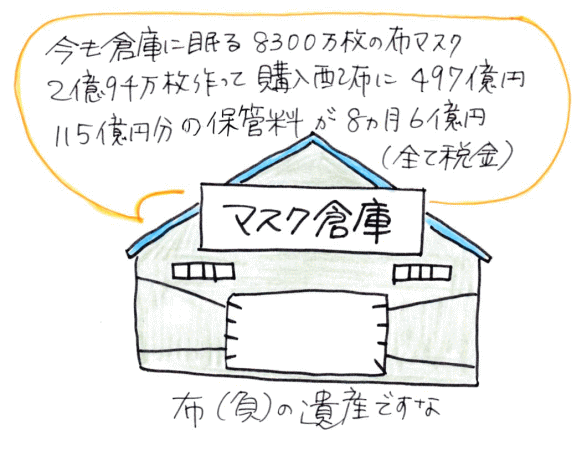 今も倉庫に眠る8300万枚の布マスク
2億9千万枚作って購入配布に497億円
115億円分の保管料が8ヵ月6億円
(全て税金)
マスク倉庫
布(負)の遺産ですな